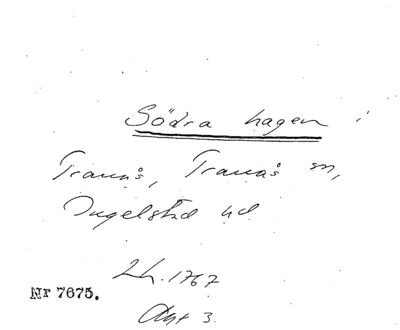 Södra hagen i
Tranås, Tranås sn,
Ingelstad hd
Lh. 1767
Akt 3.
Nr 7675.